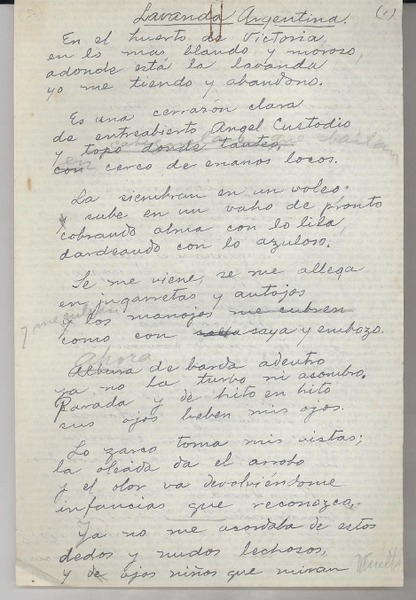 Lavanda Argentina. (1)
En el huerto de Victoria
en lo mas blando y moroso,
adonde está la lavanda
yo me tiendo y abandono.
Es una cerrazón clara
de entreabierto Angel Custodio
y topo donde tanteo,
con cerco de enanos locos.
La siembran en un voleo.
sube en un vaho de pronto
cobrando alma con lo lila,
dardeando con lo azuloso.
Se me viene, se me allega
en jugarretas y antojos
y los manojos me cubren
y me cubren
como con saya y embozo.
Ahora
de barda adentro
ya no la turbo ni asombro.
Parada y de hito en hito
sus ojos beben mis ojos.
Lo zarco toma mis vistas;
la oleada da el arrobo
y el olor va devolviéndome
infancias que reconozco.
Ya no me acordaba de estos
dedos y nudos lechosos,
y de ojos niños que miran